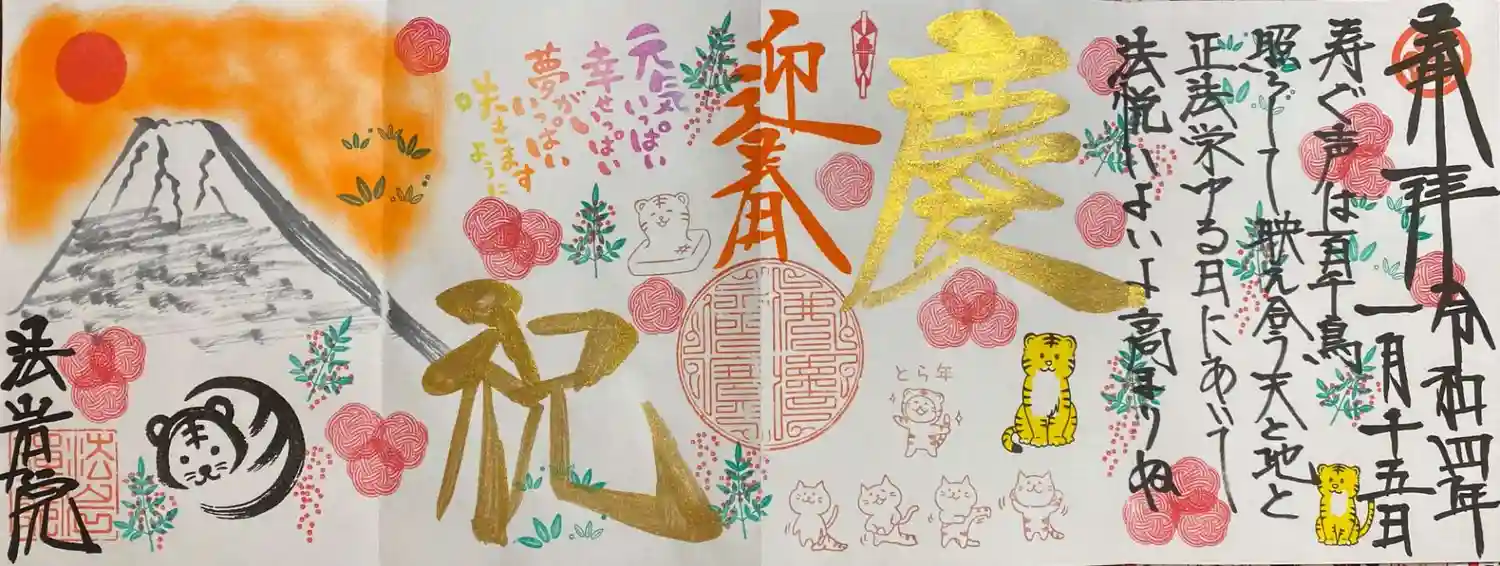 奉拝 令和四年
一月十五日
寿ぐ声は百千鳥
照らして映え合う天と地と
正法栄ゆる日にあいて
法悦いよいよ高まりぬ
慶
迎春
元気いっぱい
幸せいっぱい
夢がいっぱい
咲きます
ように
祝
とら年
法学院